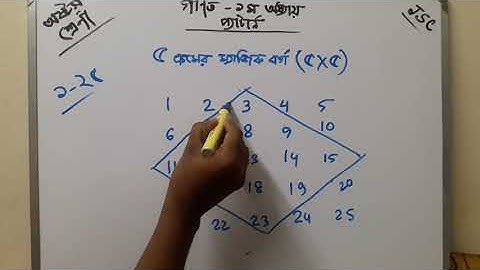 অষ্টম শ্রেণী
গণিত - ১ম অধ্যায়
প্যাটার্ন
JSC
৫ ক্রমের ম্যাজিক বর্গ (৫×৫)
১-২৫
1 2 3 4 5
6 8 9 10
11 13 14 15
18 19 20
22 23 24 25